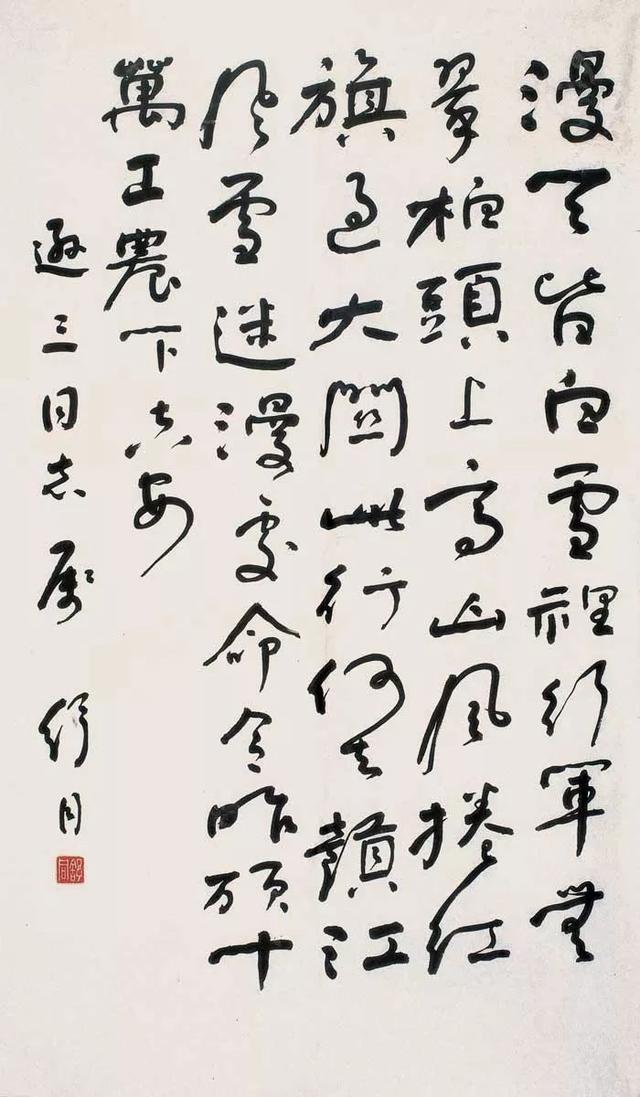 漫天皆白雪裡行軍無
翠柏頭上高山風捲紅
旗過大關此行何去贛江
風雪迷漫處命令昨頒十
萬工農下吉安
遜三同志屬 舒同
舒同